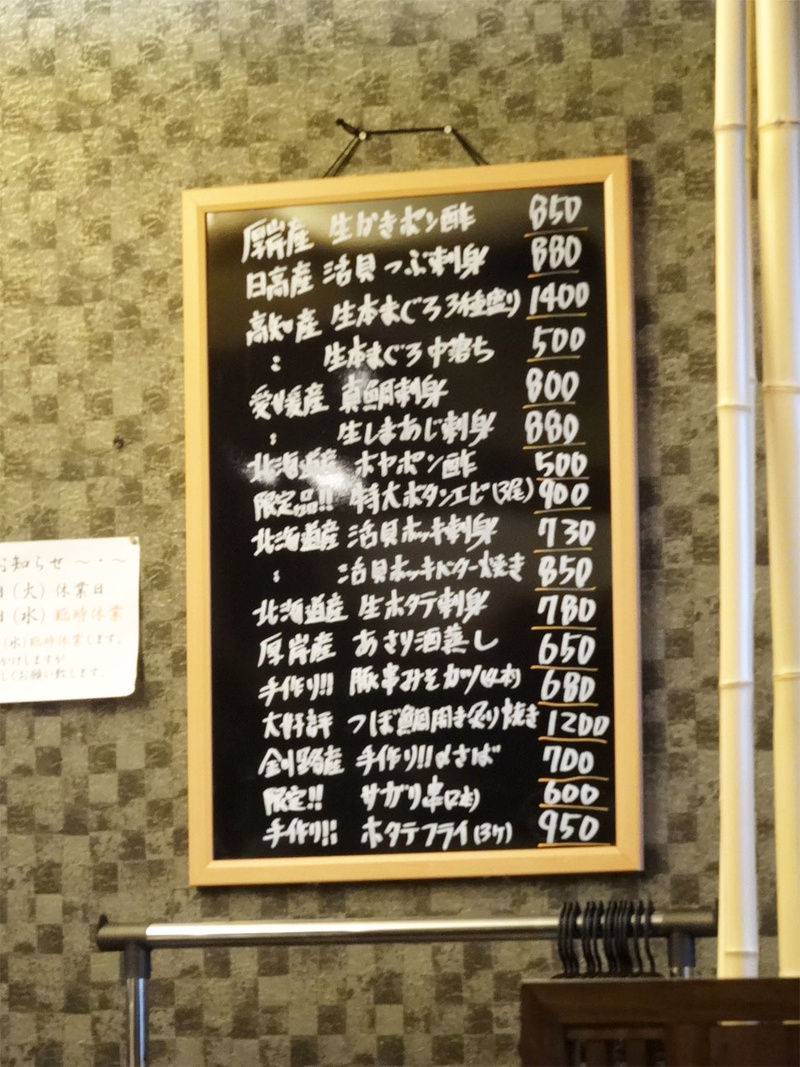 厚岸産 生かきポン酢 850
日高産 活貝つぶ刺身 880
高知産 生本まぐろ3種盛り 1400
〃 生本まぐろ中落ち 500
愛媛産 真鯛刺身 800
〃 生しまあじ刺身 880
北海道産 ホヤポン酢 500
限定品!! 特大ボタンエビ(3尾) 900
北海道産 活貝ホッキ刺身 730
〃 活貝ホッキバター焼き 850
北海道産 生ホタテ刺身 780
厚岸産 あさり酒蒸し 650
手作り!! 豚串みそカツ(4本) 680
大好評 つぼ鯛開き炙り焼き 1200
釧路産 手作り!!〆さば 700
限定!! サガリ串 600
手作り!! ホタテフライ(3ケ) 950
お知らせ ～・～
日(火)休業日
日(水)臨時休業
(水)臨時休業します。
かけしますが
しくお願い致します。